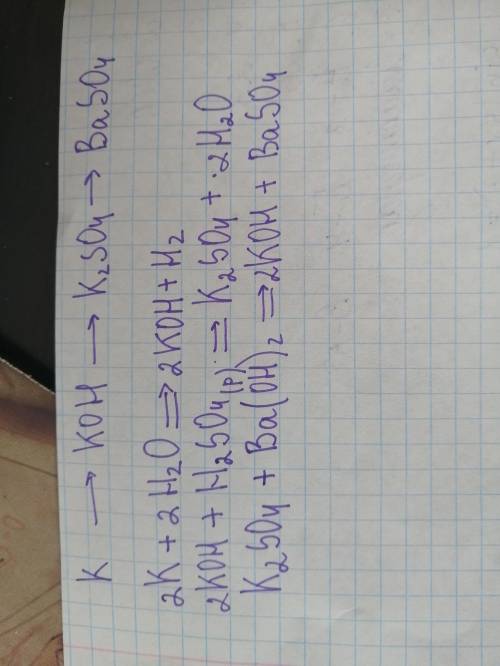 K → KOH → K₂SO₄ → BaSO₄
2K + 2H₂O ⇒ 2KOH + H₂
2KOH + H₂SO₄(р) = K₂SO₄ + 2H₂O
K₂SO₄ + Ba(OH)₂ ⇒ 2KOH + BaSO₄